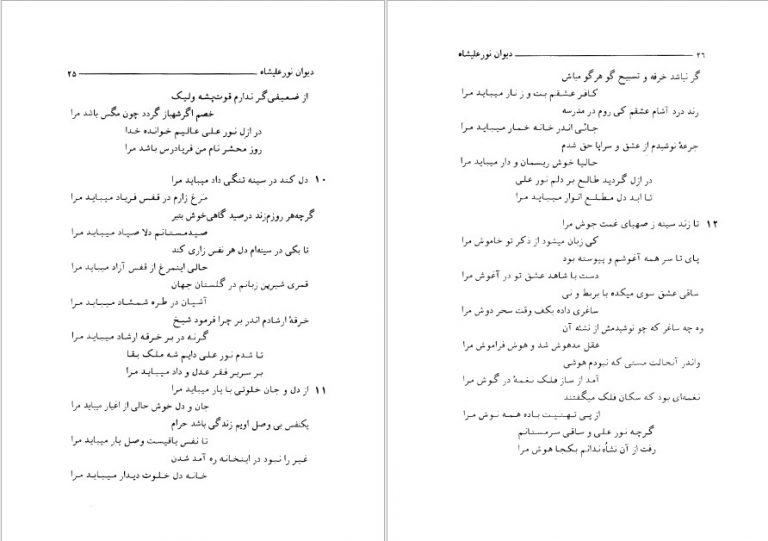 دیوان نورعلیشاه ۲۵
از ضعیفی گر ندارم قوت پشه ولیک
خصم اگر شهباز گردد چون مگس باشد مرا
در ازل نور علی عالیم خوانده خدا
روز محشر نام من فریادرس باشد مرا
۱۰ دل کند در سینه تنگی داد میباید مرا
مرغ زارم در قفس فریاد میباید مرا
گرچه هر روزم زند درصید گاهی خوش بتیر
صیدمستانم دلا صیاد میباید مرا
تا بکی در سینه‌ام دل هر نفس زاری کند
حالی اینمرغ از قفس آزاد میباید مرا
قمری شیرین زبانم در گلستان جهان
آشیان در طره شمشاد میباید مرا
خرقهٔ ارشادم اندر بر چرا فرمود شیخ
گرنه در بر خرقه ارشاد میباید مرا
تا شدم نور علی دایم شه ملک بقا
بر سریر فقر عدل و داد میباید مرا
۱۱ از دل و جان خلوتی با یار میباید مرا
جان و دل خوش حالی از اغیار میباید مرا
یکنفس بی وصل اویم زندگی باشد حرام
تا نفس باقیست وصل یار میباید مرا
غیر را نبود در اینخانه ره آمد شدن
خانه دل خلوت دیدار میباید مرا
۲۶ دیوان نورعلیشاه
گر نباشد خرقه و تسبیح گو هرگو مباش
کافر عشقم بت و زنار میباید مرا
رند درد آشام عشقم کی روم در مدرسه
جائی اندر خانه خمار میباید مرا
جرعهٔ نوشیدم از عشق و سراپا حق شدم
حالیا خوش ریسمان و دار میباید مرا
در ازل گردید طالع بر دلم نور علی
تا ابد دل مطلع انوار میباید مرا
۱۲ تا زند سینه ز صهبای غمت جوش مرا
کی زبان میشود از ذکر تو خاموش مرا
پای تا سر همه آغوشم و پیوسته بود
دست با شاهد عشق تو در آغوش مرا
ساقی عشق سوی میکده با بربط و نی
ساغری داده بکف وقت سحر دوش مرا
وه چه ساغر که چو نوشیدمش از نشئه آن
عقل مدهوش شد و هوش فراموش مرا
واندر آنحالت مستی که نبودم هوشی
آمد از ساز فلک نغمهٔ در گوش مرا
نغمه‌ای بود که سکان فلک میگفتند
از پی تهنیت باده همه نوش مرا
گرچه نور علی و ساقی سرمستانم
رفت از آن نشأه ندانم بکجا هوش مرا